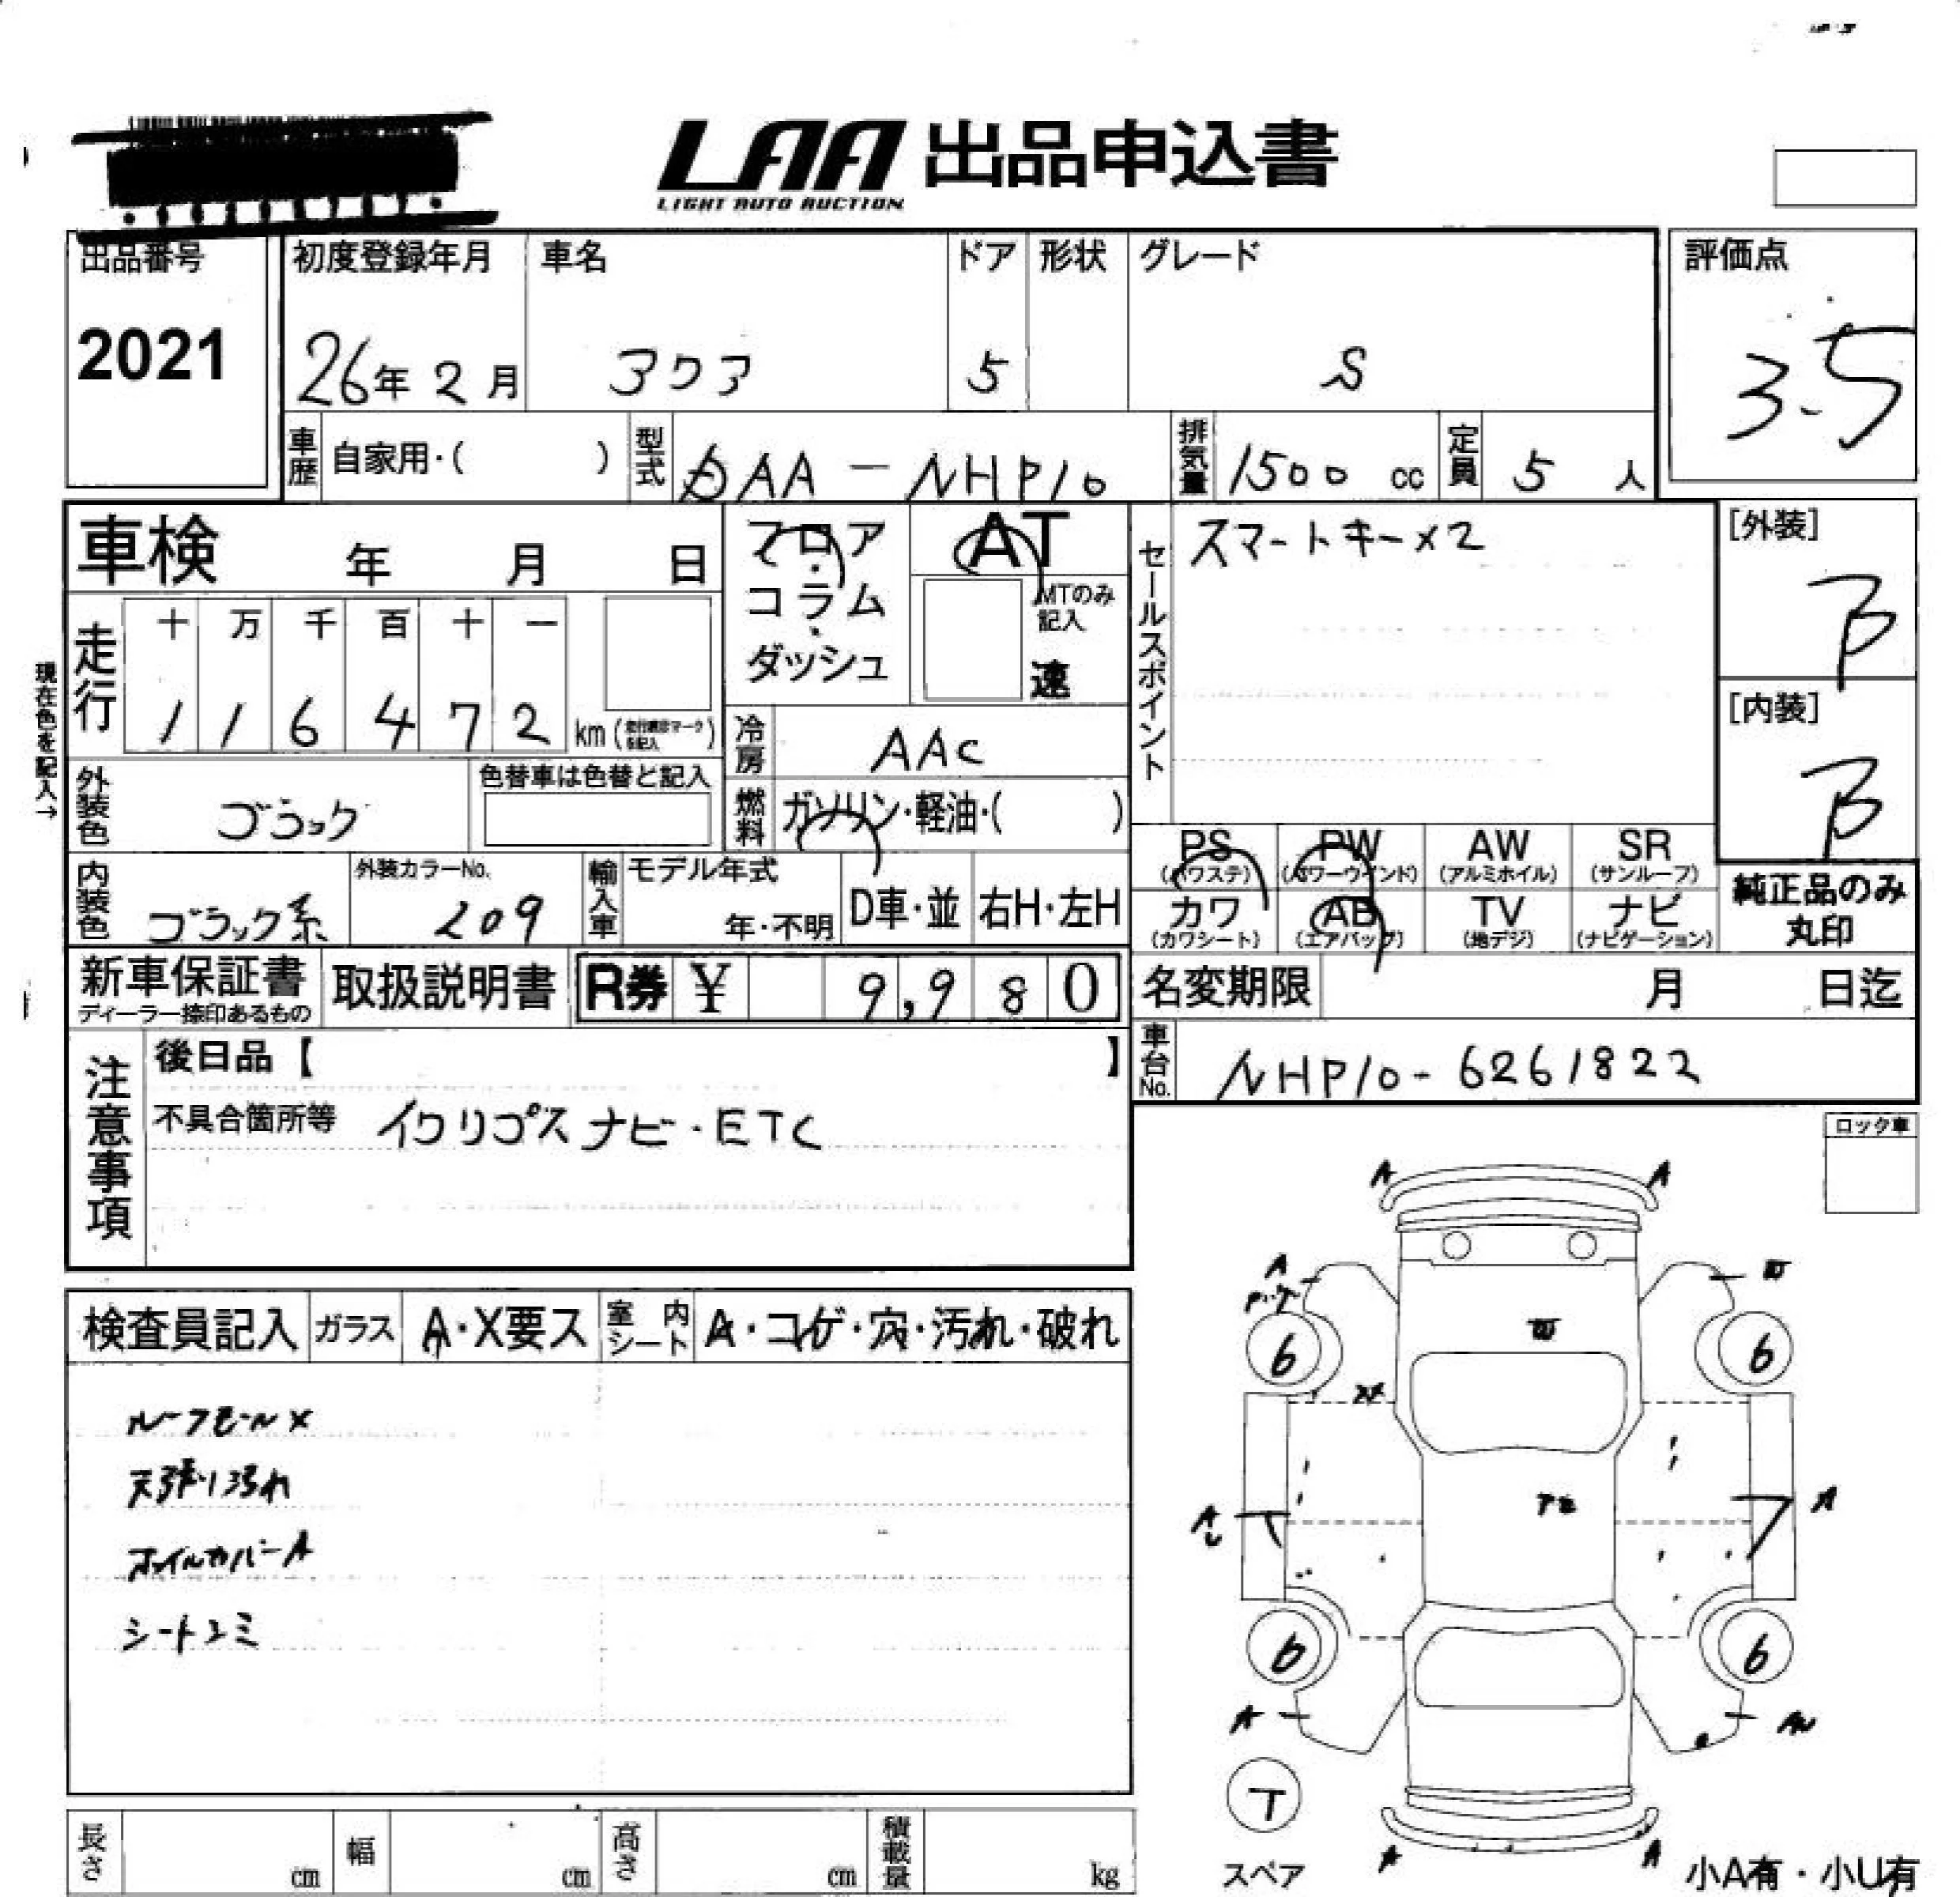 LAA 出品申込書
LIGHT AUTO AUCTION
出品番号
2021
初度登録年月
26年 2月
車名
アクア
ドア
5
形状
グレード
S
評価点
3.5
車歴
自家用・( )
型式
DAA-NHP10
排気量
1500 cc
定員
5 人
車検 年 月 日
フロア
・
コラム
・
ダッシュ
AT
MTのみ
記入
速
セールスポイント
スマートキー×2
[外装]
B
[内装]
B
現在色を記入→
走行
十 万 千 百 十 一
1 1 6 4 7 2 km
冷房
AAC
外装色
ブラック
色替車は色替と記入
燃料
ガソリン・軽油・( )
内装色
ブラック系
外装カラーNo.
209
輸入車
モデル年式
年・不明
D車・並
右H・左H
PS
(パワステ)
PW
(パワーウインド)
AW
(アルミホイル)
SR
(サンルーフ)
カワ
(カワシート)
AB
(エアバッグ)
TV
(地デジ)
ナビ
(ナビゲーション)
純正品のみ
丸印
新車保証書
ディーラー捺印あるもの
取扱説明書
R券 ¥ 9,980
名変期限 月 日迄
車台No.
NHP10-6261822
注意事項
後日品【 】
不具合箇所等 イクリプスナビ・ETC
ロック車
検査員記入
ガラス
A・X要ス
室内シート
A・コゲ・穴・汚れ・破れ
ルーフモールX
天張り汚れ
ホイルカバーA
シートユミ
A A
A
6 6
XX
A A
6 6
A
T
スペア
A A
小A有・小U有
長さ cm
幅 cm
高さ cm
積載量 kg